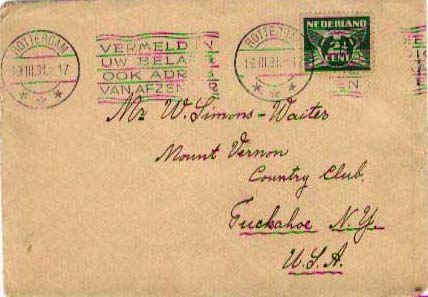 ROTTERDAM
19.III.31.-17
VERMELD
UW BELA
OOK ADR
VAN AFZEN
NEDERLAND
2½
CENT
Mr W. Simons-Waiter
Mount Vernon
Country Club.
Tuckahoe N.Y.
U.S.A.